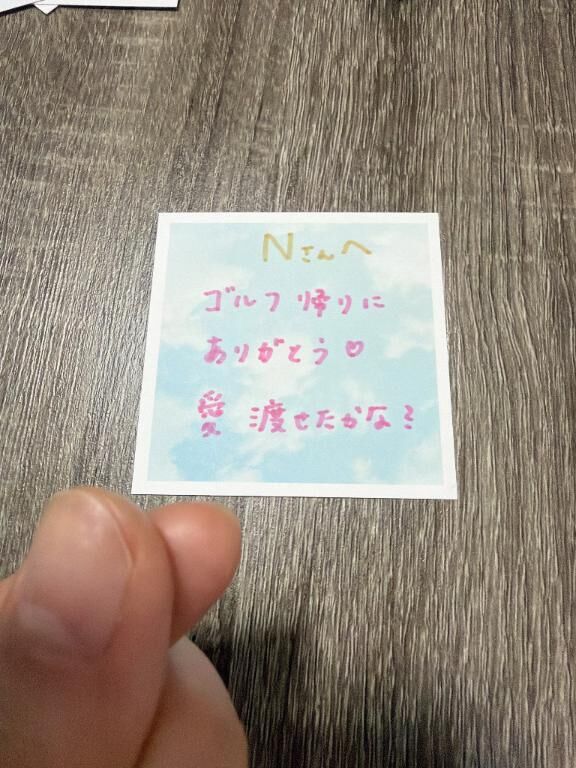 Nさんへ
ゴルフ帰りに
ありがとう♡
愛 渡せたかな?